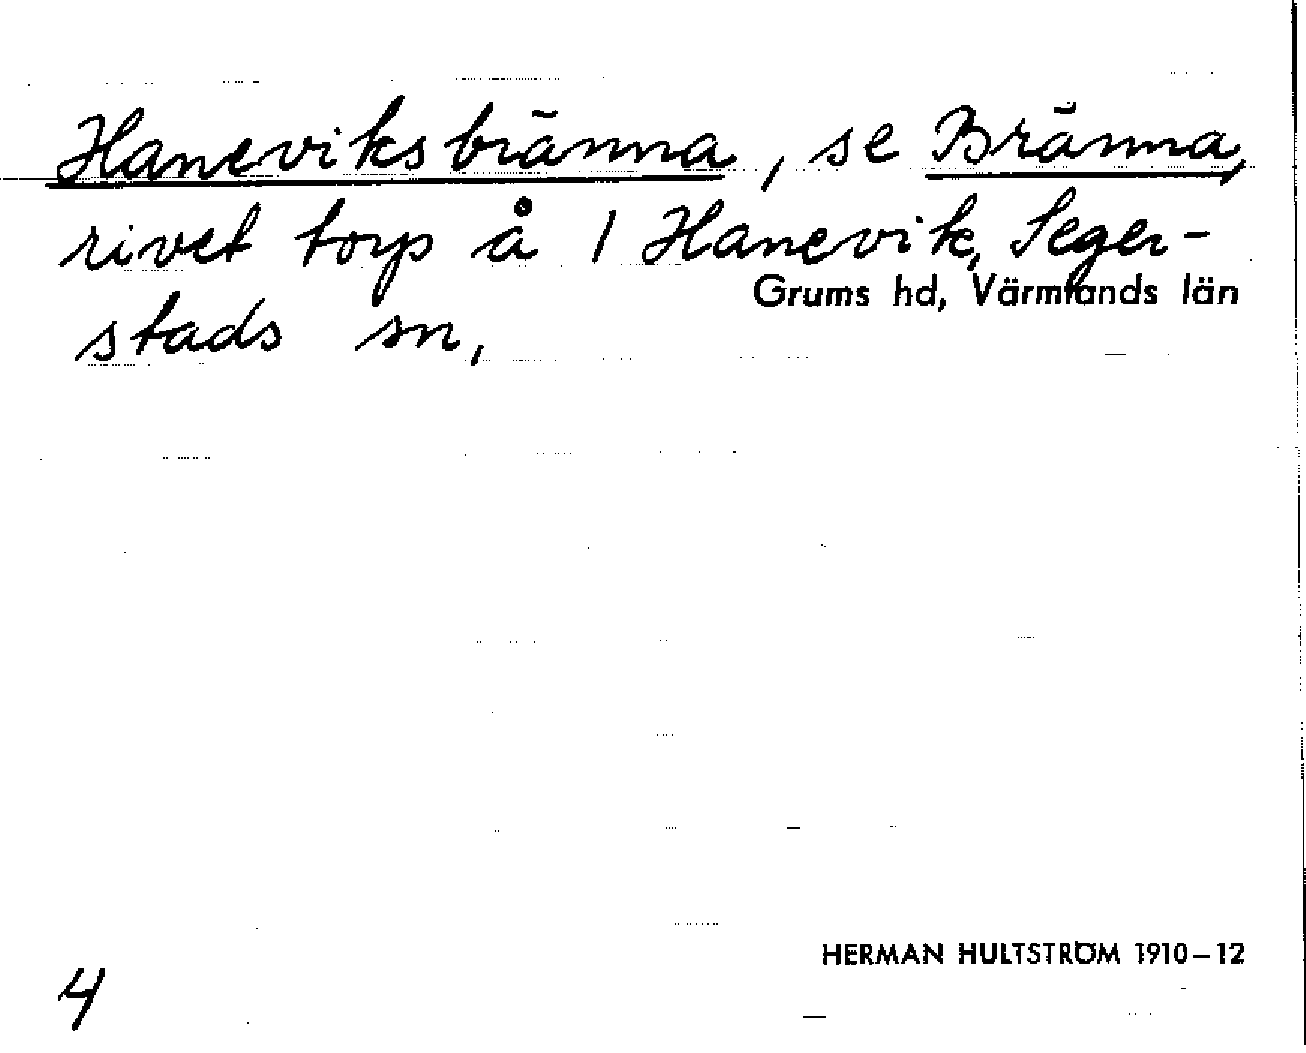 Haneviksbränna, se Bränna,
rivet torp å 1 Hanevik, Seger-
Grums hd, Värmlands län
stads sn,
HERMAN HULTSTRÖM 1910–12
4